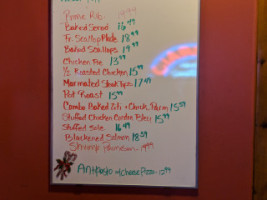 Prime Rib 1999
Baked Scrod 16.99
Fr. Scallop Plate 18.99
Baked Scallops 19.99
Chicken Pie 13.99
1/2 Roasted Chicken 15.99
Marinated Steak Tips 17.99
Pot Roast 15.99
Combo Baked Ziti + Chick Parm 15.99
Stuffed Chicken Cordon Bleu 15.99
Stuffed Sole 16.99
Blackened Salmon 18.59
Shrimp 1999
Antipasto + Cheese Pizza - 12.99